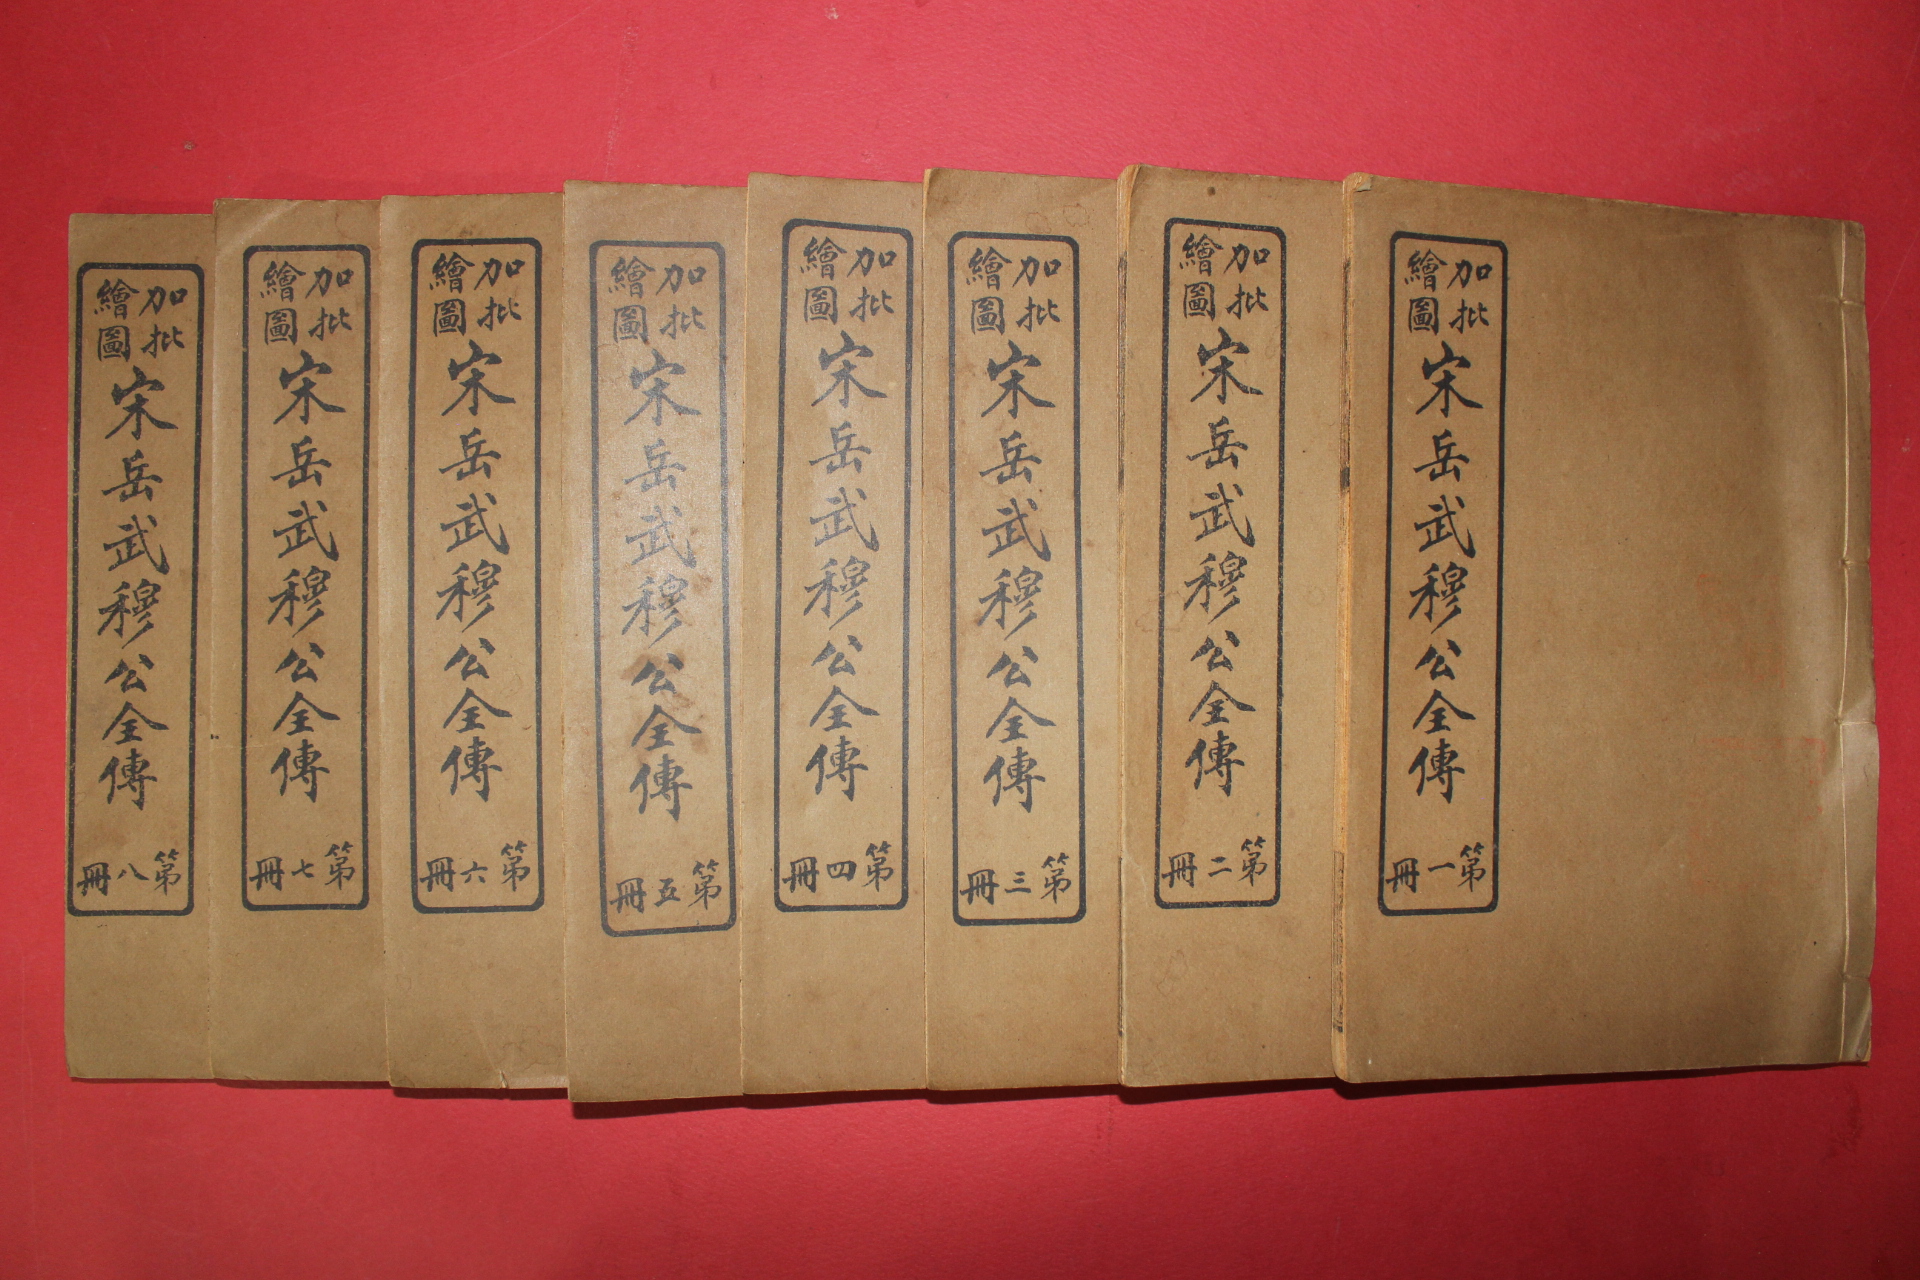 加批
繪圖
宋岳武穆公全傳
第一冊
加批
繪圖
宋岳武穆公全傳
第二冊
加批
繪圖
宋岳武穆公全傳
第三冊
加批
繪圖
宋岳武穆公全傳
第四冊
加批
繪圖
宋岳武穆公全傳
第五冊
加批
繪圖
宋岳武穆公全傳
第六冊
加批
繪圖
宋岳武穆公全傳
第七冊
加批
繪圖
宋岳武穆公全傳
第八冊